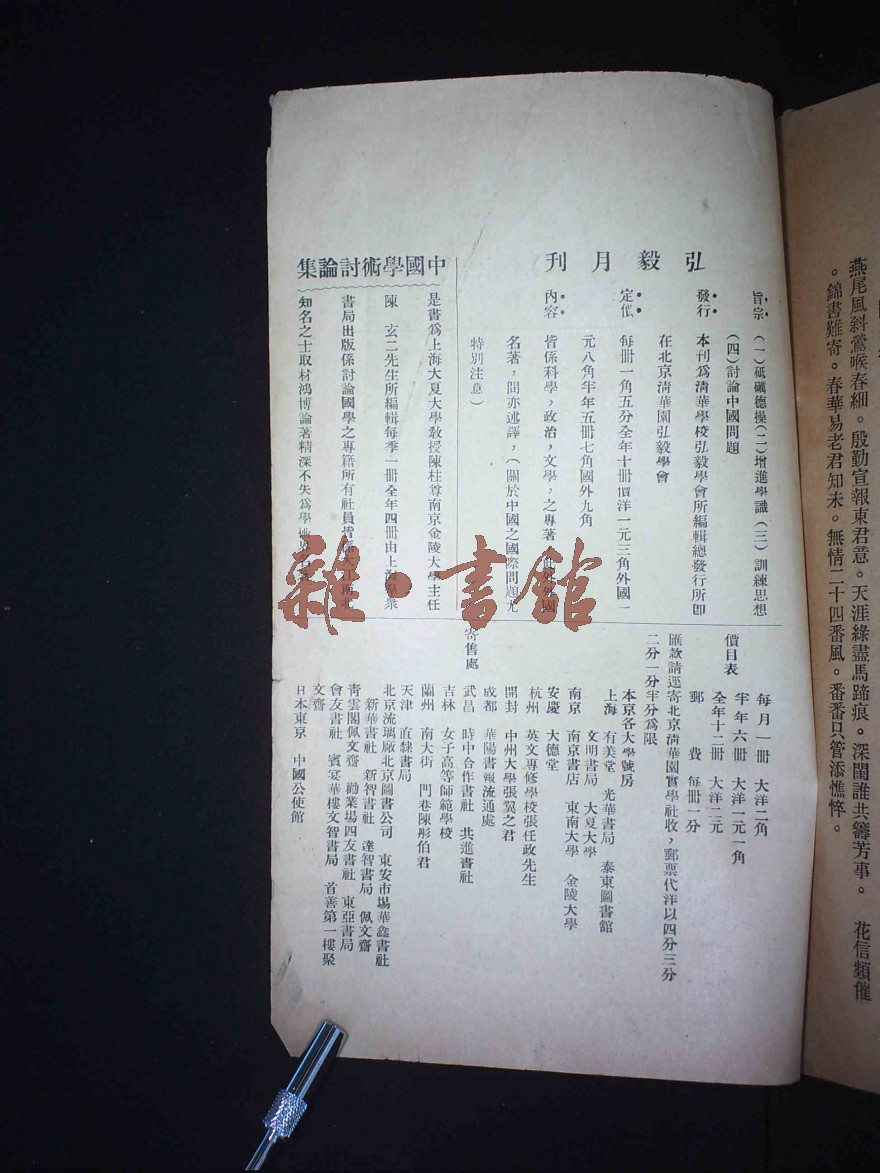 燕尾風斜鶯喉春細。殷勤宣報東君意。天涯綠盡馬蹄痕。深閨誰共籌芳事。 花信頻催
。錦書難寄。春華易老君知未。無情二十四番風。番番只管添憔悴。
弘毅月刊
旨宗 (一)砥礪德操(二)增進學識(三)訓練思想
(四)討論中國問題
發行 本刊爲清華學校弘毅學會所編輯總發行所即
在北京清華園弘毅學會
定價 每冊一角五分全年十冊價洋一元三角外國一
元八角半年五冊七角國外九角
內容 皆係科學，政治，文學，之專著，此外外國
名著，間亦述譯，(關於中國之國際問題尤
特別注意)
中國學術討論集
是書爲上海大夏大學教授陳柱尊南京金陵大學主任
陳 玄二先生所編輯每季一冊全年四冊由上海羣衆
書局出版係討論國學之專籍所有社員皆係大江南北
知名之士取材鴻博論著精深不失爲學
價目表
每月一冊 大洋二角
半年六冊 大洋一元一角
全年十二冊 大洋二元
郵 費 每冊一分
匯款請逕寄北京清華園實學社收，郵票代洋以四分三分
二分一分半分爲限
寄售處
本京各大學號房
上海 有美堂 光華書局 泰東圖書館
文明書局 大夏大學
南京 南京書店 東南大學 金陵大學
安慶 大德堂
杭州 英文專修學校張任政先生
開封 中州大學張翼之君
成都 華陽書報流通處
武昌 時中合作書社 共進書社
吉林 女子高等師範學校
蘭州 南大街 門巷陳彤伯君
天津 直隸書局
北京流璃廠北京圖書公司 東安市場華鑫書社
新華書社 新智書社 達智書局 佩文齋
靑雲閣佩文齋 勸業場四友書社 東亞書局
會友書社 賓宴華樓文智書局 首善第一樓聚
文齋
日本東京 中國公使館
雜·書館